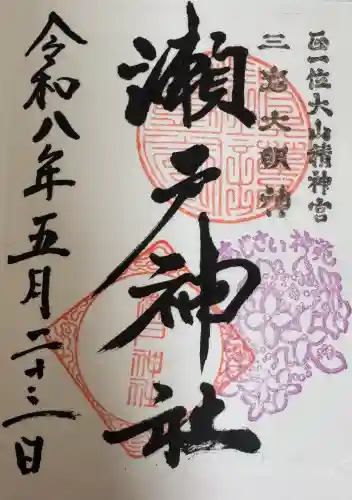 正一位大山積神宮
三嶌大明神
瀬戸神社
あじさい神苑
令和八年五月二十三日